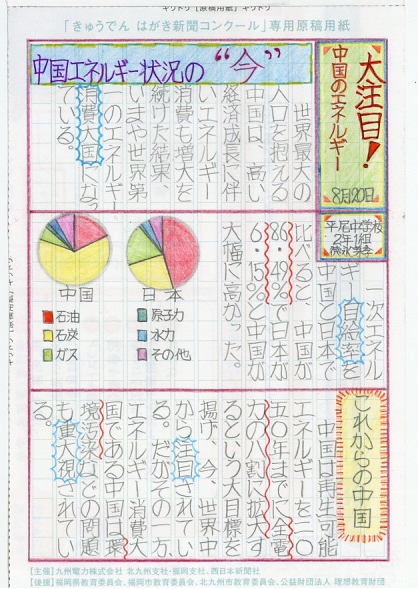 キリトリ【原稿用紙】キリトリ
「きゅうでん はがき新聞コンクール」専用原稿用紙
大注目!
中国のエネルギー
8月20日
平尾中学校
2年1組
中国エネルギー状況の“今”
世界最大の
人口を抱える
中国は、高い
経済成長に伴
いエネルギー
消費も増大を
続けた結果、
いまや世界第
一のエネルギー
消費大国になっ
ている。
一次エネル
ギー自給率を
中国と日本で
比べると、中国が
86.49%で日本が
6.15%と中国が
大幅に高かった。
中国
日本
石油
石炭
ガス
原子力
水力
その他
これからの中国
中国は再生可能
エネルギーを二〇
五〇年までに全電
力の八割に拡大す
るという大目標を
掲げ、今、世界中
から注目されてい
る。だがその一方、
エネルギー消費大
国である中国は環
境汚染などの問題
も重大視されてい
る。
【主催】九州電力株式会社 北九州支社・福岡支社、西日本新聞社
【後援】福岡県教育委員会、福岡市教育委員会、北九州市教育委員会、公益財団法人 理想教育財団